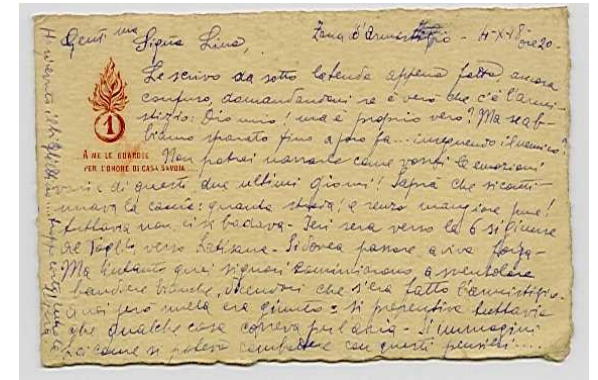 Gent ma Signa Lina, Zona d'armistizio - 4-XI-18 ore 20 -
Le scrivo da sotto la tenda appena fatta, ancora
confuso, domandandomi se è vero che c'è l'armi-
stizio: Dio mio! ma è proprio vero? Ma se ab-
biamo sparato fino a poco fa... inseguendo il nemico?
1
A ME LE GUARDIE
PER L'ONORE DI CASA SAVOIA
Non potrei narrarle come vorrei le emozioni
varie di questi due ultimi giorni! Saprà che si cammi-
nava la caccia: quanta strada! e senza mangiare pure!
tuttavia non ci si badava - Ieri sera verso le 6 si giunse
al Taglto verso Latisana - Si dovea passare a viva forza -
Ma intanto quei signori cominciarono a sventolare
bandiere bianche, dicendoci che s'era fatto l'armistizio -
A noi però nulla era giunto: si presentiva tuttavia
che qualche cosa correva per l'aria - Si immagini
Lei come si poteva combattere con questi pensieri....